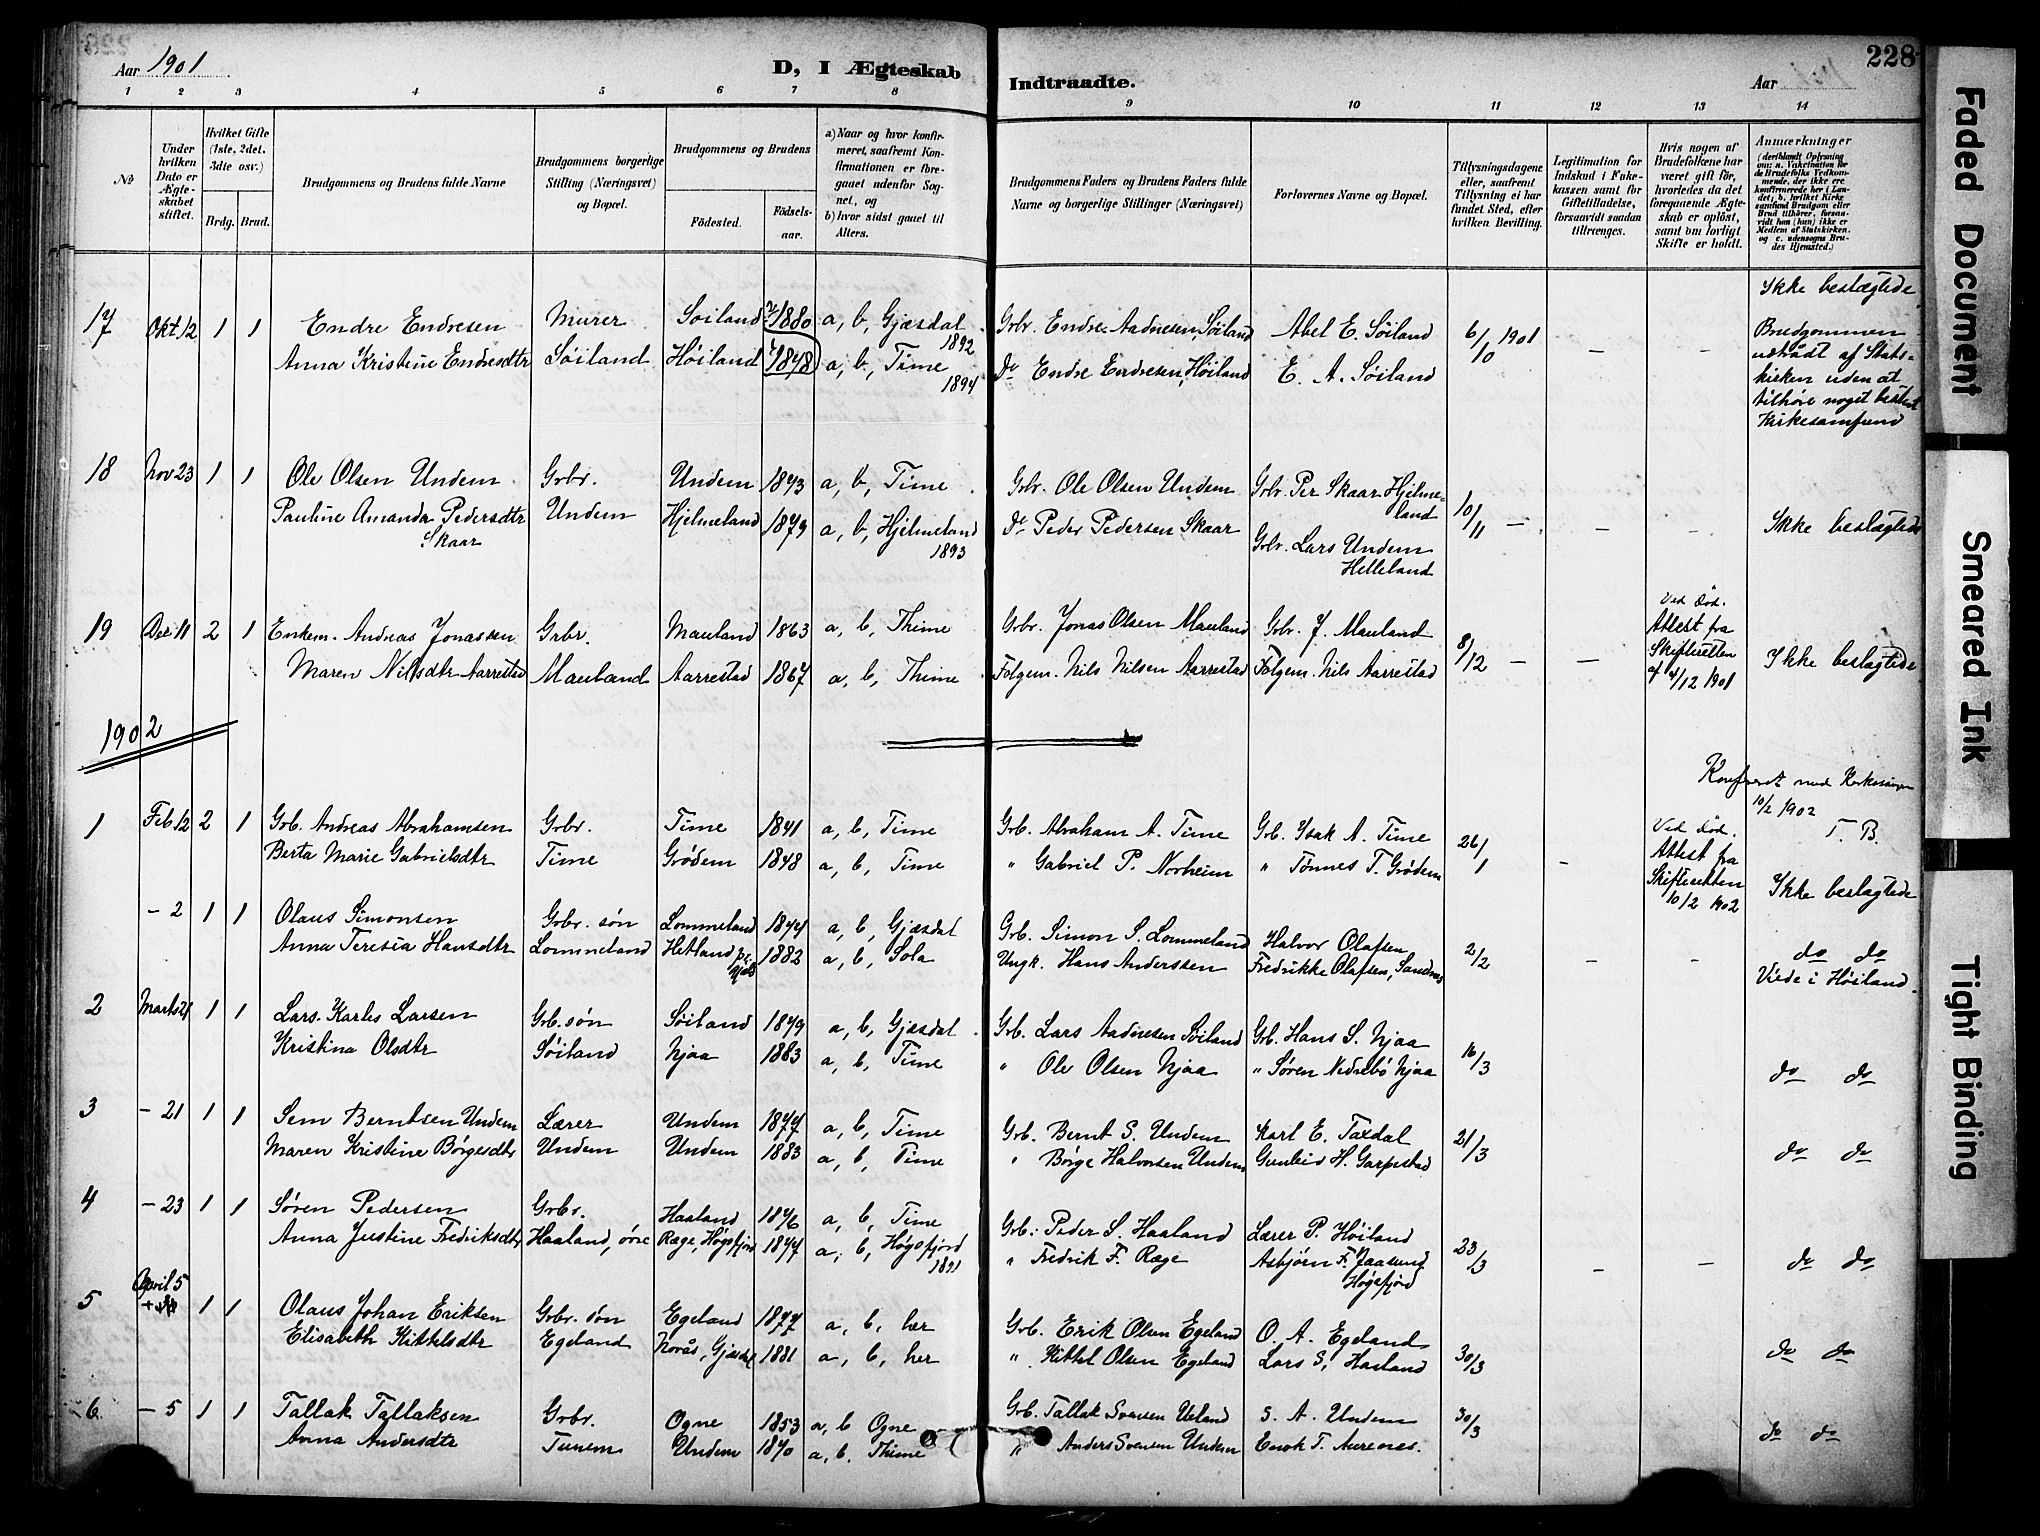 Aar 1901
D, I Ægteskab Indtraadte.
Aar
228
1 2 3 4 5 6 7 8 9 10 11 12 13 14
№
Under hvilken Dato er Ægteskabet stiftet.
Hvilket Gifte (1ste, 2det, 3dte osv.)
Brdg. Brud.
Brudgommens og Brudens fulde Navne
Brudgommens borgerlige Stilling (Næringsvei) og Bopæl.
Brudgommens og Brudens
Födested. Födselsaar.
a) Naar og hvor konfirmeret, saafremt Konfirmationen er foregaaet udenfor Sognet, og
b) hvor sidst gaaet til Alters.
Brudgommens Faders og Brudens Faders fulde Navne og borgerlige Stillinger (Næringsvei)
Forlovernes Navne og Bopæl.
Tillysningsdagene eller, saafremt Tillysning ei har fundet Sted, efter hvilken Bevilling.
Legitimation for Indskud i Enkekassen samt for Giftetilladelse, forsaavidt saadan tiltrænges.
Hvis nogen af Brudefolkene har været gift før, hvorledes da det foregaaende Ægteskab er oplöst, samt om lovligt Skifte er holdt.
Anmærkninger
(deriblandt Oplysning om: a. Vakcination for de Brudefolks Vedkommende, der ikke ere konfirmerede her i Landet; b. hvilket Kirkesamfund Brudgom eller Brud tilhörer, forsaavidt han (hun) ikke er Medlem af Statskirken, og c. udensogns Brudes Hjemsted.)
17 Okt. 12 1 1 Endre Endresen Murer Søiland 1880 a, b, Gjæsdal 1892 Grbr. Endre Aadnesen, Søiland Abel E. Søiland 6/10 1901 – – Ikke beslægtede
Anna Kristine Endresdtr Søiland Høiland 1878 a, b, Time 1894 Do Endre Endresen, Høiland E. A. Søiland
Brudgommen
udtrådt af Stats-
kirken uden at
tilhøre noget bestemt
Kirkesamfund
18 Nov 23 1 1 Ole Olsen Undem Grbr. Undem 1873 a, b, Time Grbr. Ole Olsen Undem Grbr. Per Skaar Hjelmeland 10/11 – – – Ikke beslægtede
Pauline Amanda Pedersdtr Skaar Undem Hjelmeland 1879 a, b, Hjelmeland 1893 Do Peder Pedersen Skaar Grbr. Lars Undem Helleland
19 Des 11 2 1 Enkem. Andreas Jonassen Grbr. Mauland 1863 a, b, Thime Grbr. Jonas Olsen Mauland Grbr. J. Mauland 8/12 – – Ved død. Attest fra Skifteretten af 4/12 1901 Ikke beslægtede
Maren Nilsdtr Aarrestad Mauland Aarrestad 1867 a, b, Thime Følgem. Nils Nilsen Aarrestad Følgem. Nils Aarrestad
1902
Konfereret med Kirkesangeren
10/2 1902
T. B.
1 Feb 12 2 1 Grb. Andreas Abrahamsen Grbr. Time 1841 a, b, Time Grb. Abraham A. Time Grb. Isak A. Time 26/1 – Ved død. Attest fra Skifteretten 10/2 1902 Ikke beslægtede
Berta Marie Gabrielsdtr Time Grødem 1848 a, b, Time " Gabriel P. Norheim " Tønnes T. Grødem
– 2 1 1 Olaus Simonsen Grbr. søn Lommeland 1877 a, b, Gjæsdal Grb. Simon S. Lommeland Halvor Olafsen 2/2 – – do do
Anna Teresia Hansdtr Lommeland Hetland 1882 a, b, Sola Ungk. Hans Anderssen Fredrikke Olafsen, Sandnes
Viede i Høiland.
2 Marts 1 1 Lars Karlus Larsen Grb. søn Søiland 1879 a, b, Gjæsdal Grb. Lars Aadnesen Søiland Grb. Hans S. Njaa 16/3 do do
Kristina Olsdtr Søiland Njaa 1883 a, b, Time " Ole Olsen Njaa " Søren Nedrebø Njaa
3 – 21 1 1 Sem Berntsen Undem Lærer Undem 1877 a, b, Time Grb. Bernt S. Undem Karl E. Taxdal 21/3 do do
Maren Kristine Børgesdtr Undem Undem 1883 a, b, Time " Børge Halvorsen Undem Gunleiv H. Garpestad
4 – 23 1 1 Søren Pedersen Grbr. Haaland 1876 a, b, Time Grb. Peder S. Haaland Lærer P. Høiland 23/3 – – do do
Anna Justine Fredriksdtr Haaland, øvre Ræge, Høgsfjord 1877 a, b, Høgsfjord 1891 " Fredrik F. Ræge Asbjørn F. Jaasund Høgsfjord
5 April 5 1 1 Olaus Johan Eriksen Grbr. søn Egeland 1877 a, b, her Grb. Erik Olsen Egeland O. A. Egeland 30/3 do do
Elisabeth Kittelsdtr Egeland Kovås, Gjæsdal 1881 a, b, her " Kittel Olsen Egeland Lars S. Haaland
6 – 5 1 1 Tallak Tallaksen Grbr. Ogne 1853 a, b Ogne Grb. Tallak Svensen Ueland S. A. Undem 30/3 do do
Anna Andersdtr Tunem Undem 1870 a, b. Thime " Anders Svensen Undem Enok T. Aurenes.
Faded Document
Smeared Ink
Tight Binding